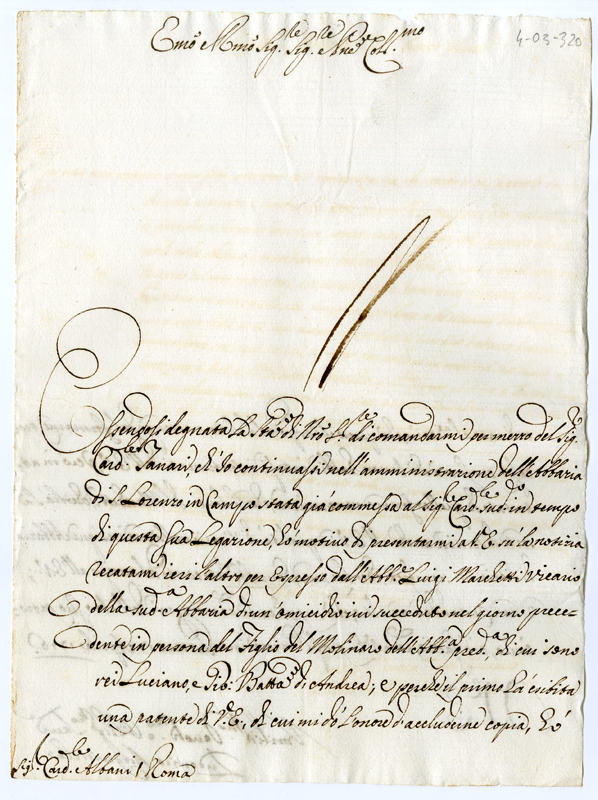 Emo e Rmo Sig.re Sig.re e Pne Colmo
4-03-320
Essendosi degnata la Stà di Nro Sre di comandarmi per mezzo del Sigr
Card.le Tanari, ch'Io continuassi nell'amministrazione dell'Abbazia
di S. Lorenzo in Campo stata già commessa al Sig.re Card.le sudo in tempo
di questa sua Legazione, hò motivo di presentarmi a V.E. sù la notizia
recatami ieri l'altro per espresso dall'Abb.e Luigi Marchetti Vicario
della suda Abbazia d'un omicidio ivi succeduto nel giorno prece-
dente in persona del Figlio del Molinaro dell'Abb.a preda, di cui sono
rei Luciano, e Gio: Batta di Andrea; e perche il primo hà esibita
una patente di V.E., di cui mi dò l'onore d'accluderne copia, hò
Sig.r Card.le Albani / Roma